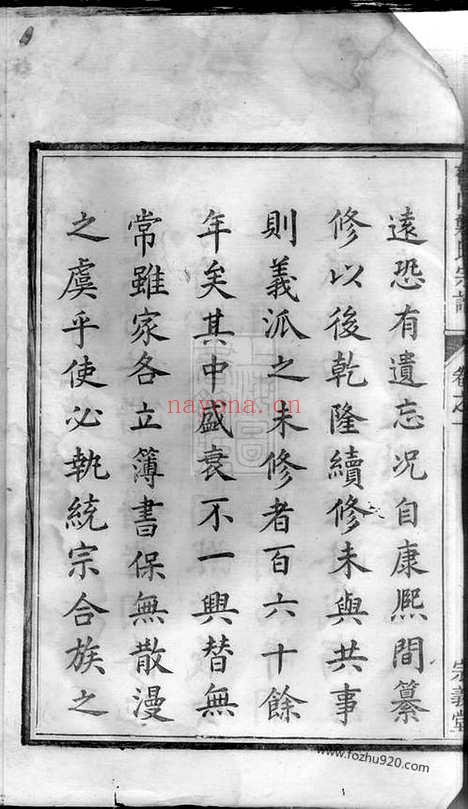 遠恐有遺忘况自康熈間纂
修以後乾隆續修未與共事
則義派之未修者百六十餘
年矣其中盛衰不一興替無
常雖家各立簿書保無散漫
之虞乎使必執統宗合族之
氏宗譜
卷之一
宗義堂
nayona.cn
www.fozhu920.com